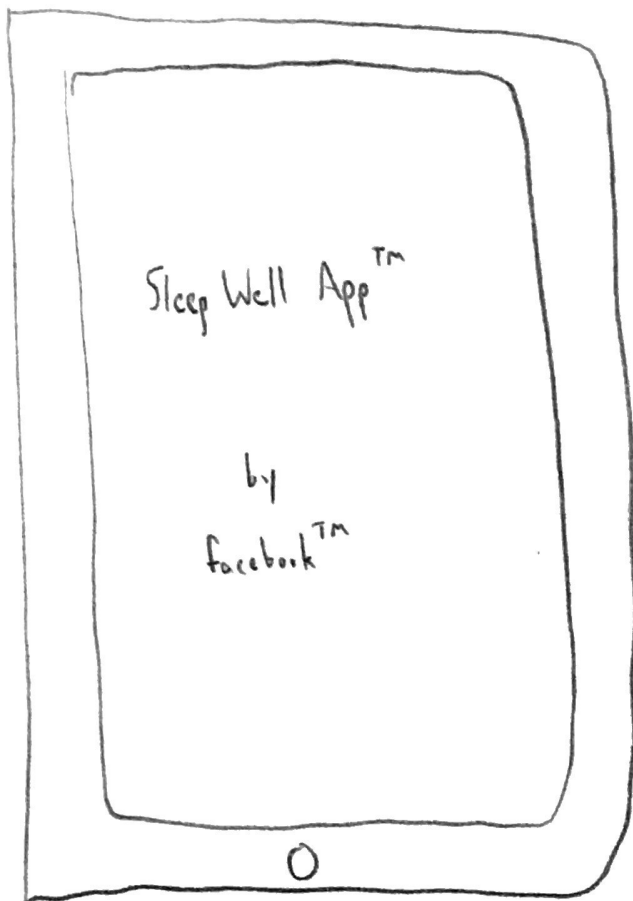 Sleep Well App™
by
facebook™